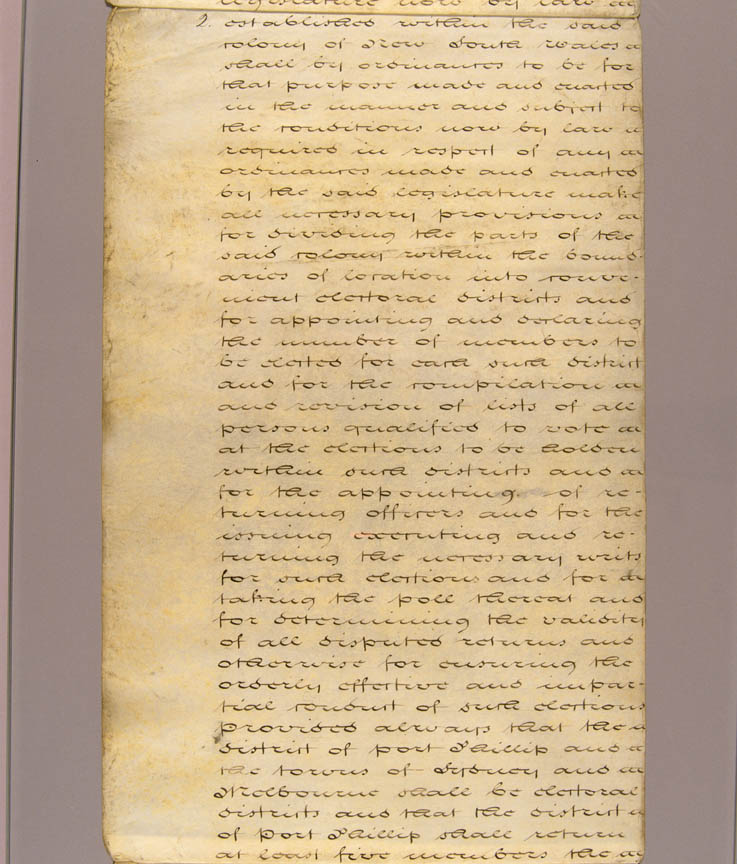 legislature now by law
2. established within the said
colony of New South Wales
shall by ordinances to be for
that purpose made and enacted
in the manner and subject to
the conditions now by law
required in respect of any
ordinances made and enacted
by the said legislature make
all necessary provisions
for dividing the parts of the
said colony within the bound-
aries of location into conve-
nient electoral districts and
for appointing and declaring
the number of members to
be elected for each such district
and for the compilation
and revision of lists of all
persons qualified to vote
at the elections to be holden
within such districts and
for the appointing of re-
turning officers and for the
issuing executing and re-
turning the necessary writs
for such elections and for
taking the poll thereat and
for determining the validity
of all disputed returns and
otherwise for ensuring the
orderly effective and impar-
tial conduct of such elections
provided always that the
district of port Phillip and
the towns of Sydney and
Melbourne shall be electoral
districts and that the district
of Port Phillip shall return
at least five members the